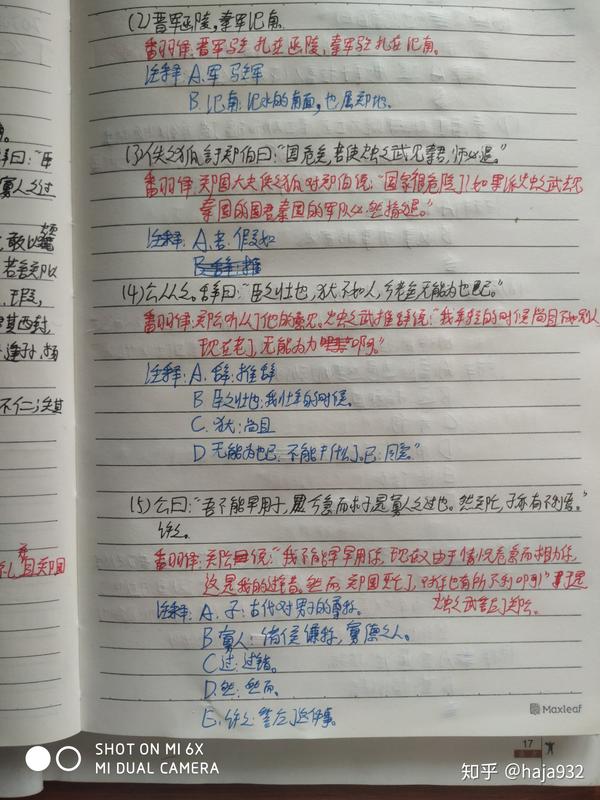 (2)晋军函陵,秦军氾南。
翻译:晋军驻扎在函陵,秦军驻扎在氾南。
注释:A.军 驻军
B.氾南:氾水的南面,也属郑地。
(3)佚之狐言于郑伯曰:“国危矣,若使烛之武见秦君,师必退。”
翻译:郑国大夫佚之狐对郑伯说:“国家很危险了!如果派烛之武去见
秦国的国君秦国的军队必然撤退。”
注释:A.若:假如
B.辞:推
(4)公从之。辞曰:“臣之壮也,犹不如人,今老矣无能为也已。”
翻译:郑公听从了他的意见。烛之武推辞说:“我年轻的时候尚且不如别人
现在老了,无能为力啊。”
注释:A.辞:推辞
B 臣之壮也:我壮年的时候。
C.犹:尚且
D 无能为也已:不能干什么了。已:同“矣”
(5)公曰:“吾不能早用子,今急而求子是寡人之过也。然郑亡,子亦有不利焉。”
许之。
翻译:郑公说:“我不能早早用你,现在又由于情况危急而相力你,
这是我的过错。然而郑国灭亡了,对你也有所不利呀!”于是
烛之武答应了郑公。
注释:A.子:古代对男子的尊称。
B 寡人:诸侯谦称,寡德之人。
C 过:过错。
D.然:然而。
E.许之:答应了这件事。
Maxleaf
17
SHOT ON MI 6X
MI DUAL CAMERA
知乎 @haja932